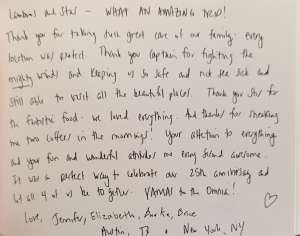 and Star — WHAT AN AMAZING TRIP!
Thank you for taking such great care of our family. Every
location was perfect. Thank you Captain for fighting the
mighty winds and keeping us so safe and not sea sick and
still able to visit all the beautiful places. Thank you Star for
the fantastic food - we loved everything. And thanks for sneaking
me two coffees in the mornings! Your attention to everything
and your fun and wonderful attitudes made every second awesome.
It was a perfect way to celebrate our 25th anniversary and
let all 4 of us be together. to the Omnia!
Love, Jennifer, Elizabeth,
Austin, TX • New York, NY